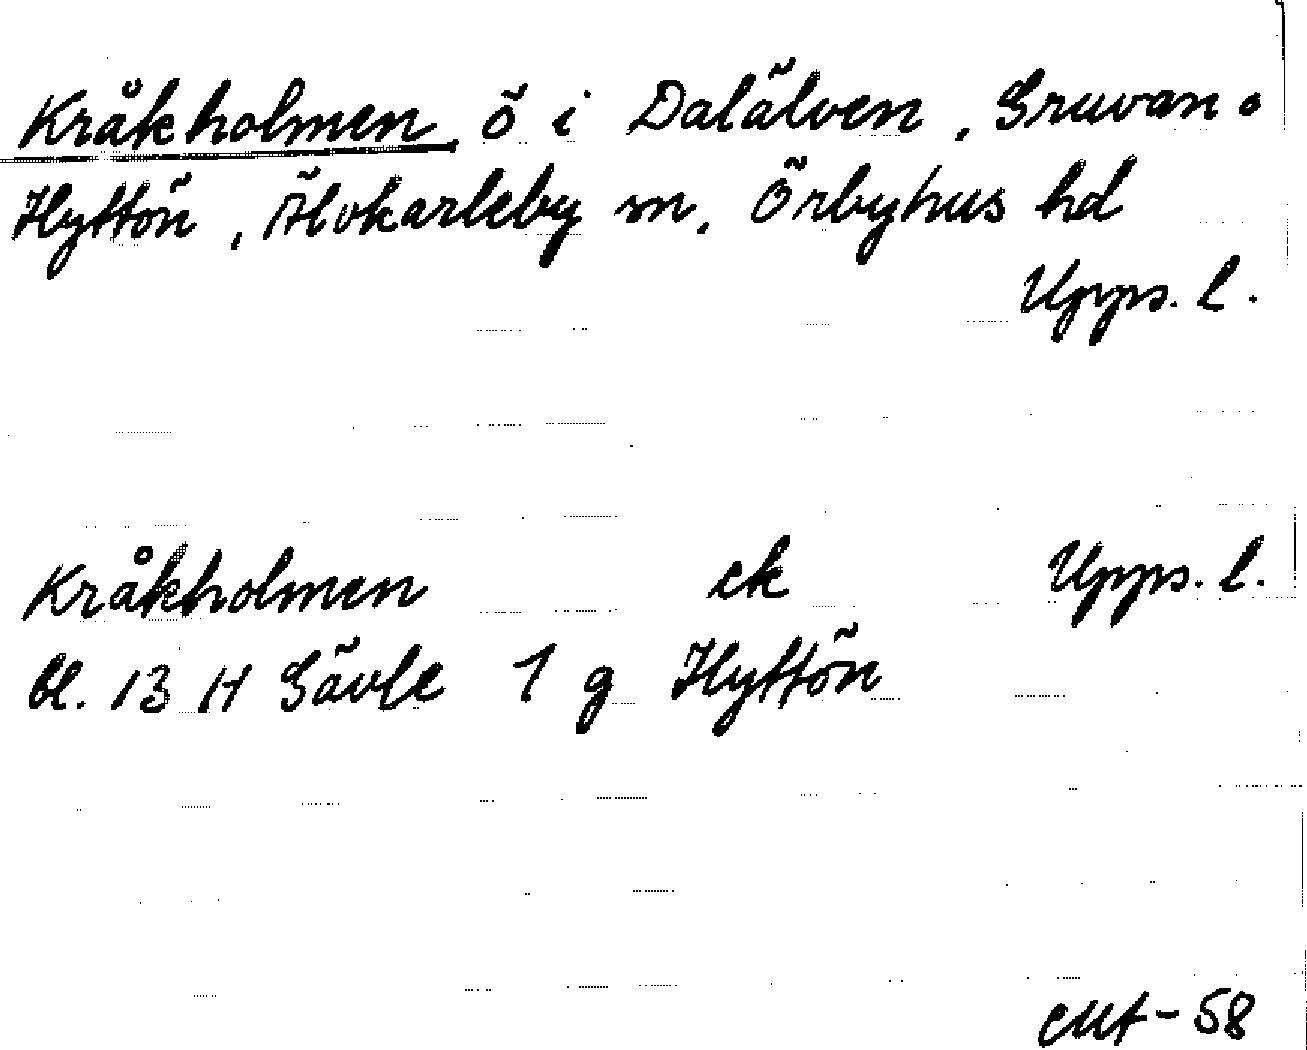 Kråkholmen, ö i Dalälven, Gruvan o
Hyttön, Älvkarleby sn, Örbyhus hd
Upps. l.
Kråkholmen ek Upps. l.
bl. 13 H Gävle 1 g Hyttön
-58